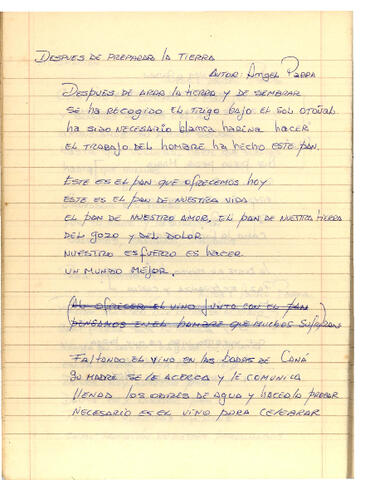 DESPUES DE PREPARAR LA TIERRA
AUTOR: ANGEL PARRA
DESPUES DE ARAR LA TIERRA Y DE SEMBRAR
SE HA RECOGIDO EL TRIGO BAJO EL SOL OTOÑAL
HA SIDO NECESARIO BLANCA HARINA HACER
EL TRABAJO DEL HOMBRE HA HECHO ESTE PAN.
ESTE ES EL PAN QUE OFRECEMOS HOY
ESTE ES EL PAN DE NUESTRA VIDA
EL PAN DE NUESTRO AMOR, EL PAN DE NUESTRA TIERRA
DEL GOZO Y DEL DOLOR
NUESTRO ESFUERZO ES HACER
UN MUNDO MEJOR.
(AL OFRECER EL VINO JUNTO CON EL PAN
PENSAMOS EN EL HOMBRE QUE MUCHOS SUFRIRAN)
FALTANDO EL VINO EN LAS BODAS DE CANÁ
SU MADRE SE LE ACERCA Y LE COMUNICA
LLENAD LOS ODRES DE AGUA Y HACERLA PROBAR
NECESARIO ES EL VINO PARA CELEBRAR